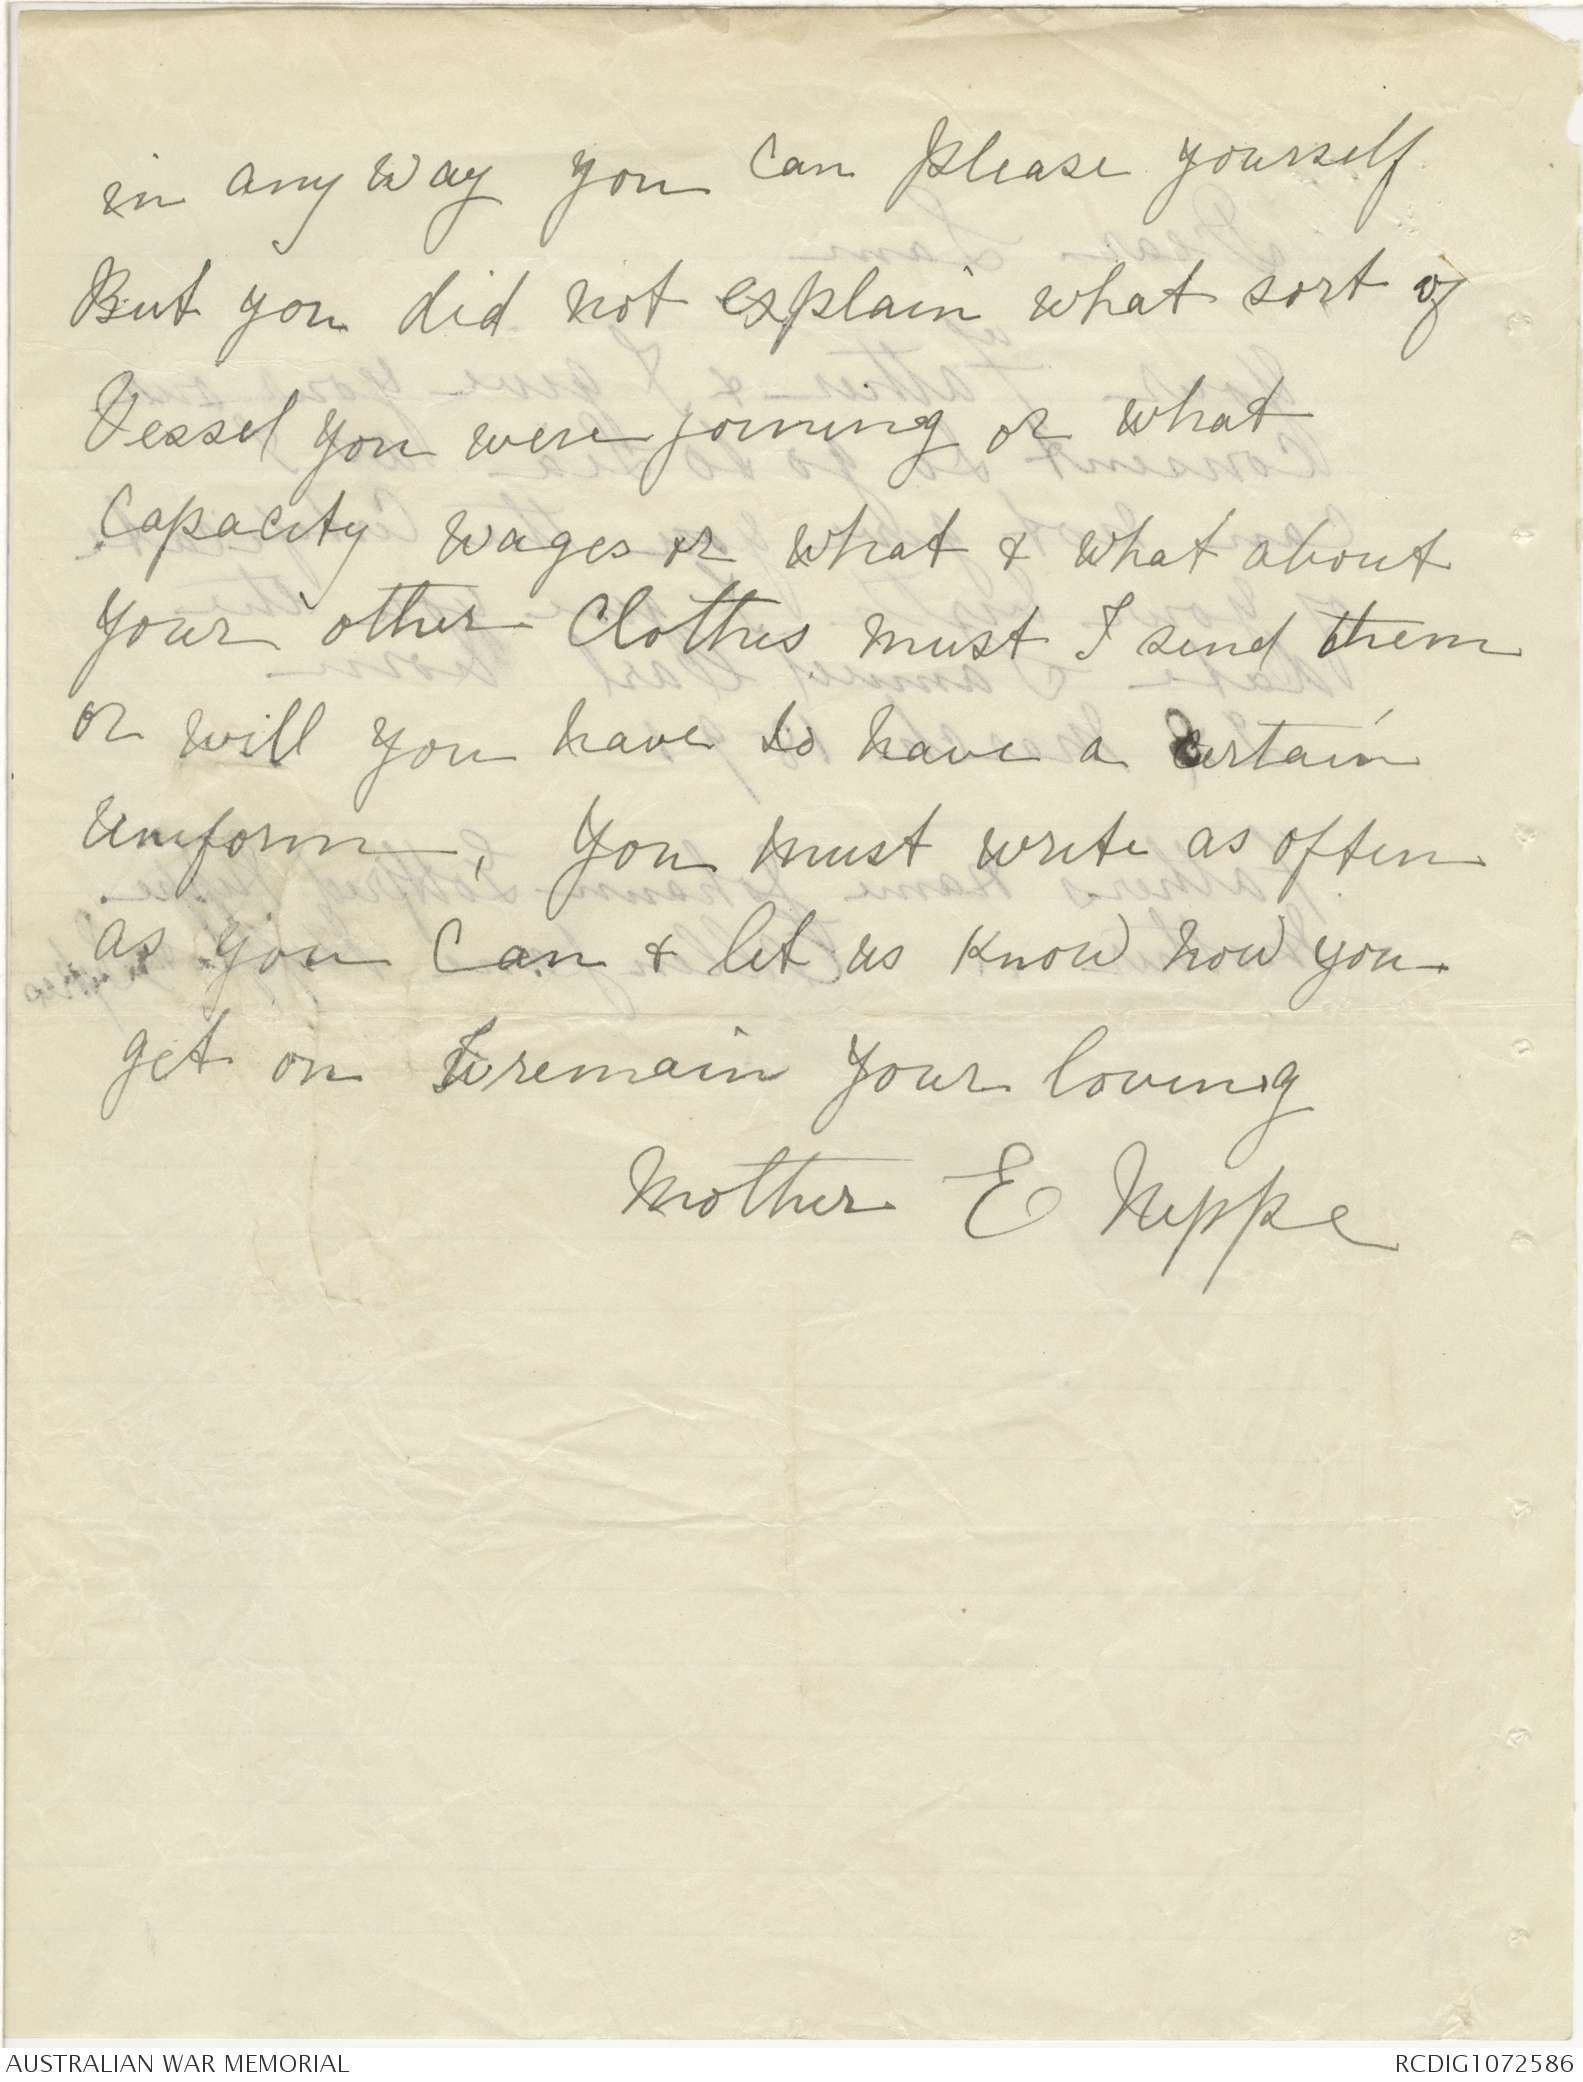 in any way you can please yourself
But you did not explain what sort of
Vessel you were joining or what
Capacity wages or what & what about
your other Clothes must I send them
or will you have to have a certain
uniform, You must write as often
as you Can & let us know how you
get on remain your loving
Mother E Neppe
AUSTRALIAN WAR MEMORIAL
RCDIG1072586